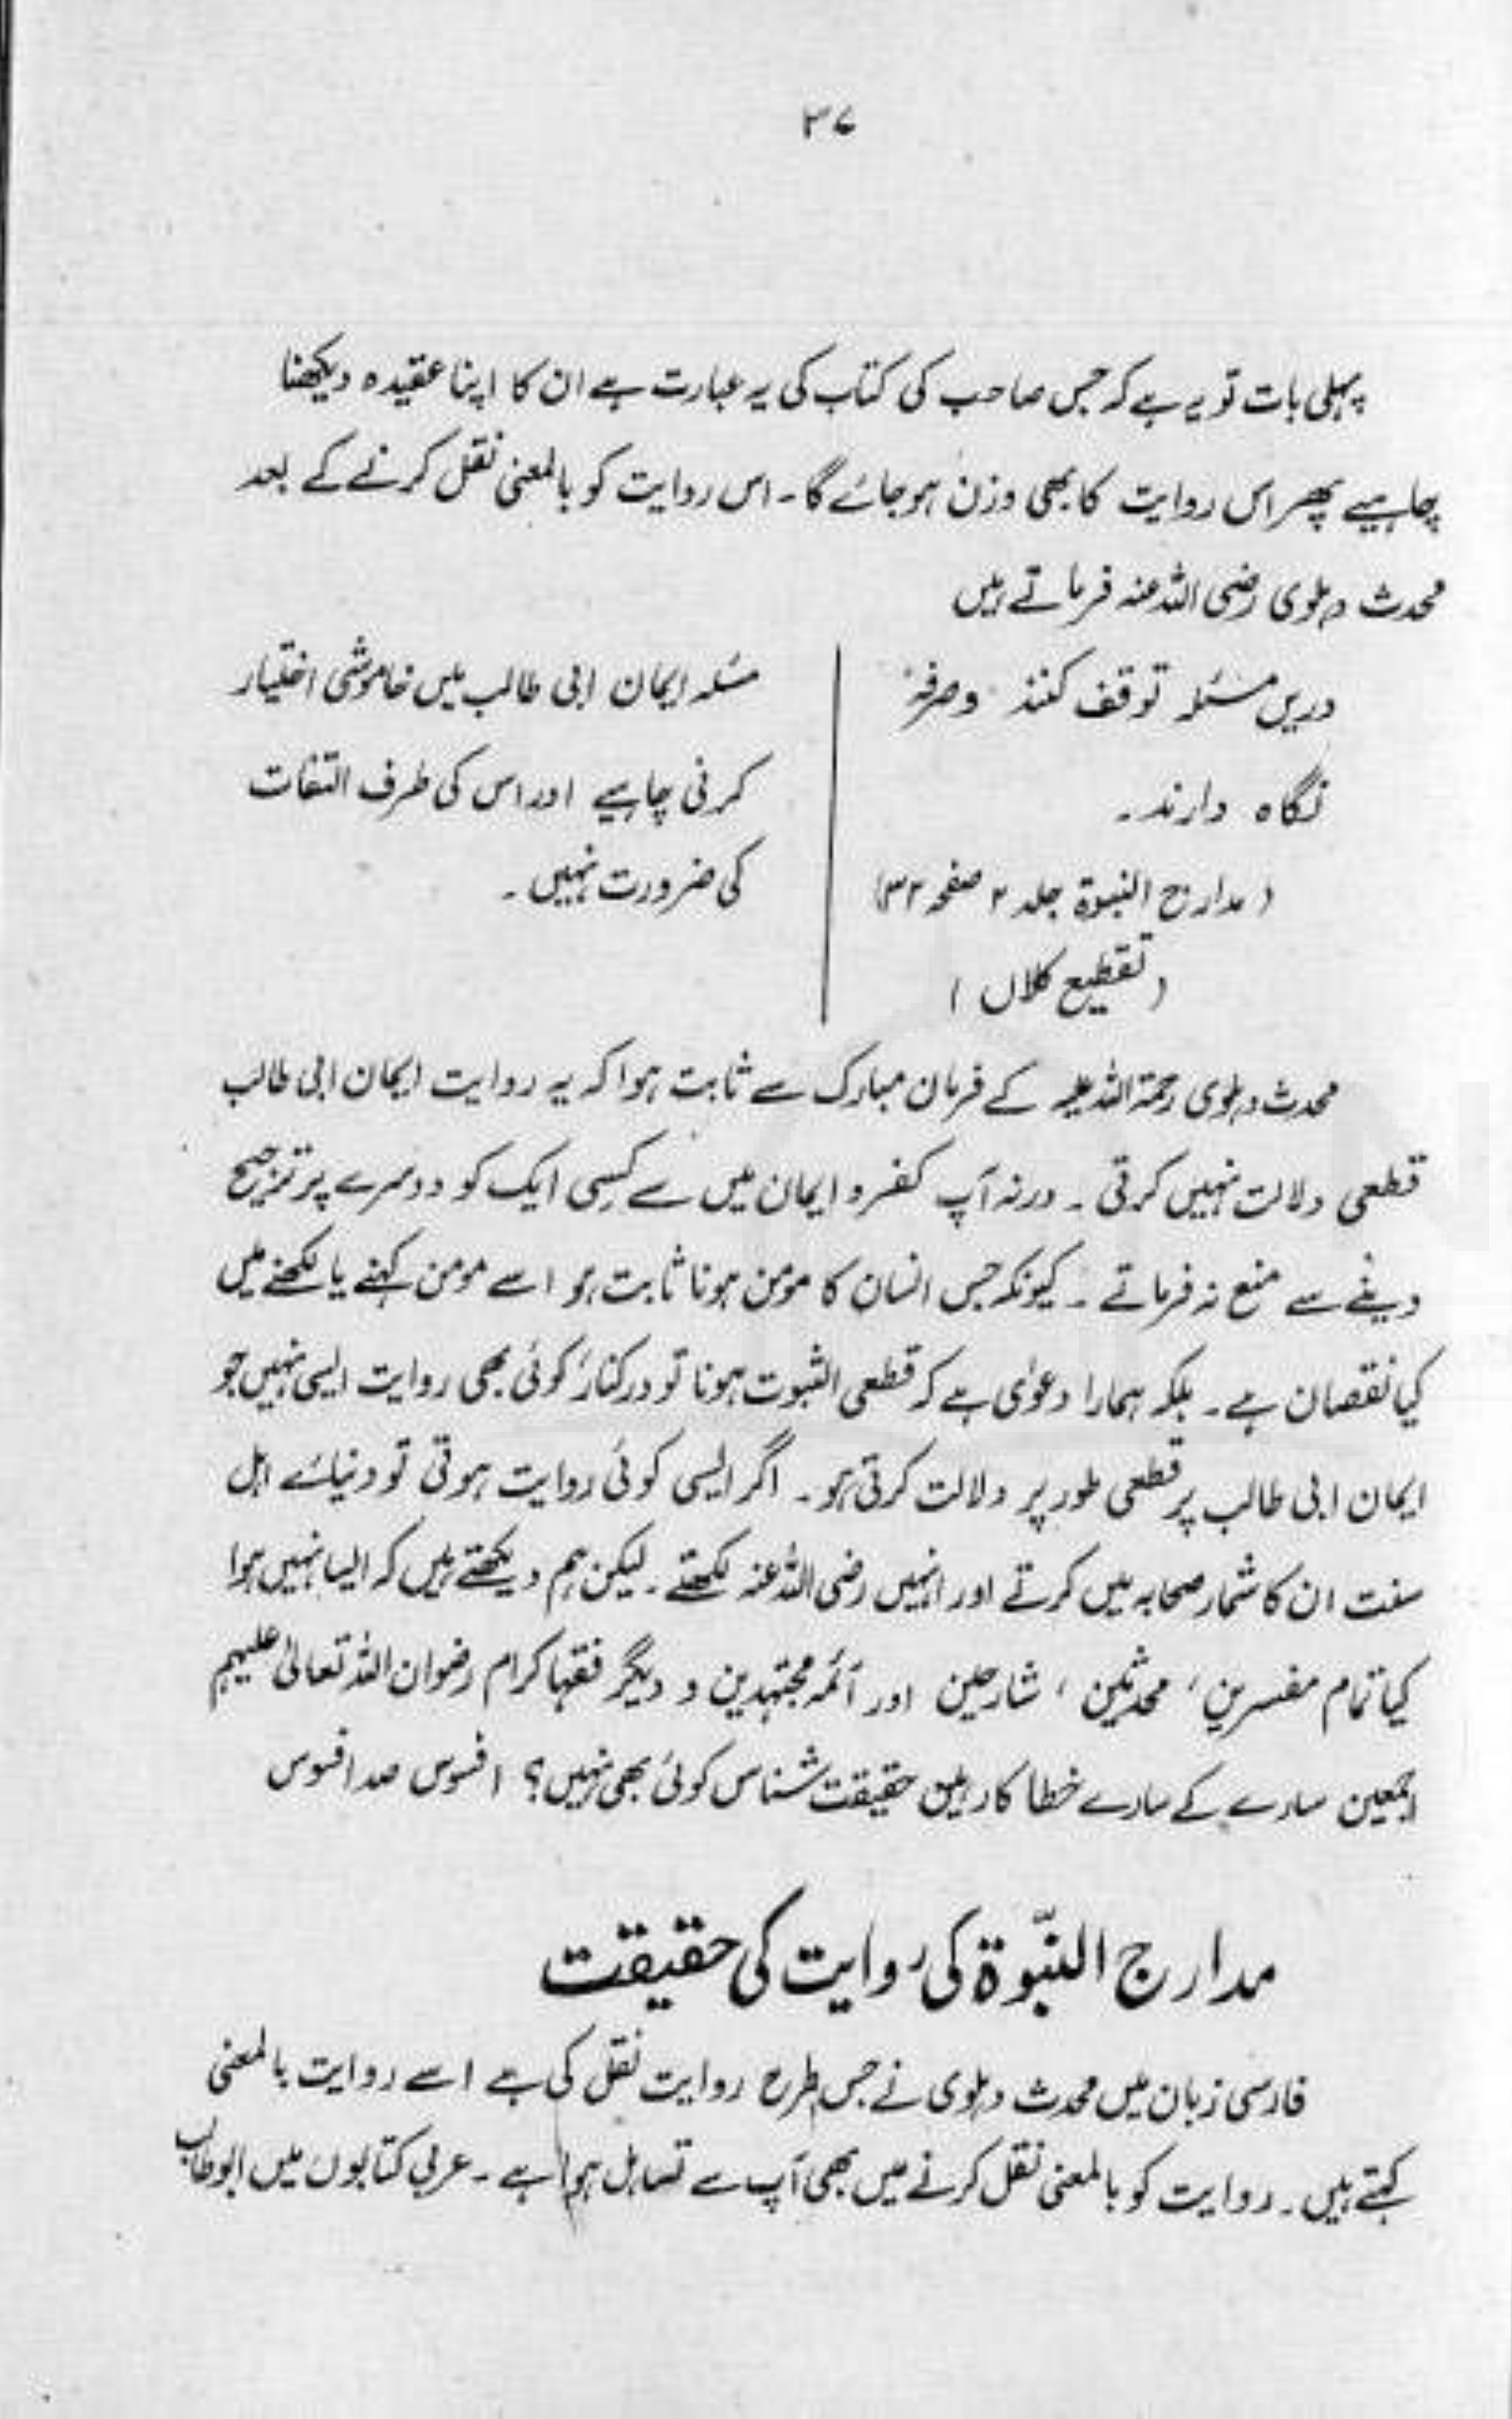 ۳۷
پہلی بات تو یہ ہے کہ جس صاحب کی کتاب کی یہ عبارت ہے ان کا اپنا عقیدہ دیکھنا
چاہیے پھر اس روایت کا بھی وزن ہو جائے گا۔ اس روایت کو بالمعنی نقل کرنے کے بعد
محدث دہلوی رضی اللہ عنہ فرماتے ہیں
دریں مسئلہ توقف کنند وصرفہ
نگاہ دارند۔
(مدارج النبوة جلد ۲ صفحہ ۳۲)
(تقطیع کلاں)
مسئلہ ایمان ابی طالب میں خاموشی اختیار
کرنی چاہیے اور اس کی طرف التفات
کی ضرورت نہیں۔
محدث دہلوی رحمۃ اللہ علیہ کے فرمان مبارک سے ثابت ہوا کہ یہ روایت ایمان ابی طالب
قطعی دلالت نہیں کرتی۔ ورنہ آپ کفر و ایمان میں سے کسی ایک کو دوسرے پر ترجیح
دینے سے منع نہ فرماتے۔ کیونکہ جس انسان کا مومن ہونا ثابت ہو اسے مومن کہنے یا لکھنے میں
کیا نقصان ہے۔ بلکہ ہمارا دعوٰی ہے کہ قطعی الثبوت ہونا تو درکنار کوئی بھی روایت ایسی نہیں جو
ایمان ابی طالب پر قطعی طور پر دلالت کرتی ہو۔ اگر ایسی کوئی روایت ہوتی تو دنیائے اہل
سنت ان کا شمار صحابہ میں کرتے اور انہیں رضی اللہ عنہ لکھتے۔ لیکن ہم دیکھتے ہیں کہ ایسا نہیں ہوا
کیا تمام مفسرین، محدثین، شارحین اور آئمہ مجتہدین و دیگر فقہا کرام رضوان اللہ تعالیٰ علیہم
اجمعین سارے کے سارے خطا کار ہیں حقیقت شناس کوئی بھی نہیں؟ افسوس صد افسوس
مدارج النبّوة کی روایت کی حقیقت
فارسی زبان میں محدث دہلوی نے جس طرح روایت نقل کی ہے اسے روایت بالمعنی
کہتے ہیں۔ روایت کو بالمعنی نقل کرنے میں بھی آپ سے تساہل ہوا ہے۔ عربی کتابوں میں ابو طالب